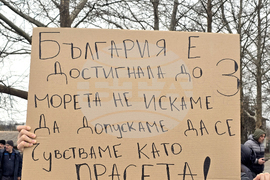 БЪЛГАРИЯ Е
ДОСТИГНАЛА ДО 3
МОРЕТА НЕ ИСКАМЕ
ДА ДОПУСКАМЕ ДА СЕ
ЧУВСТВАМЕ КАТО
ПРАСЕТА!